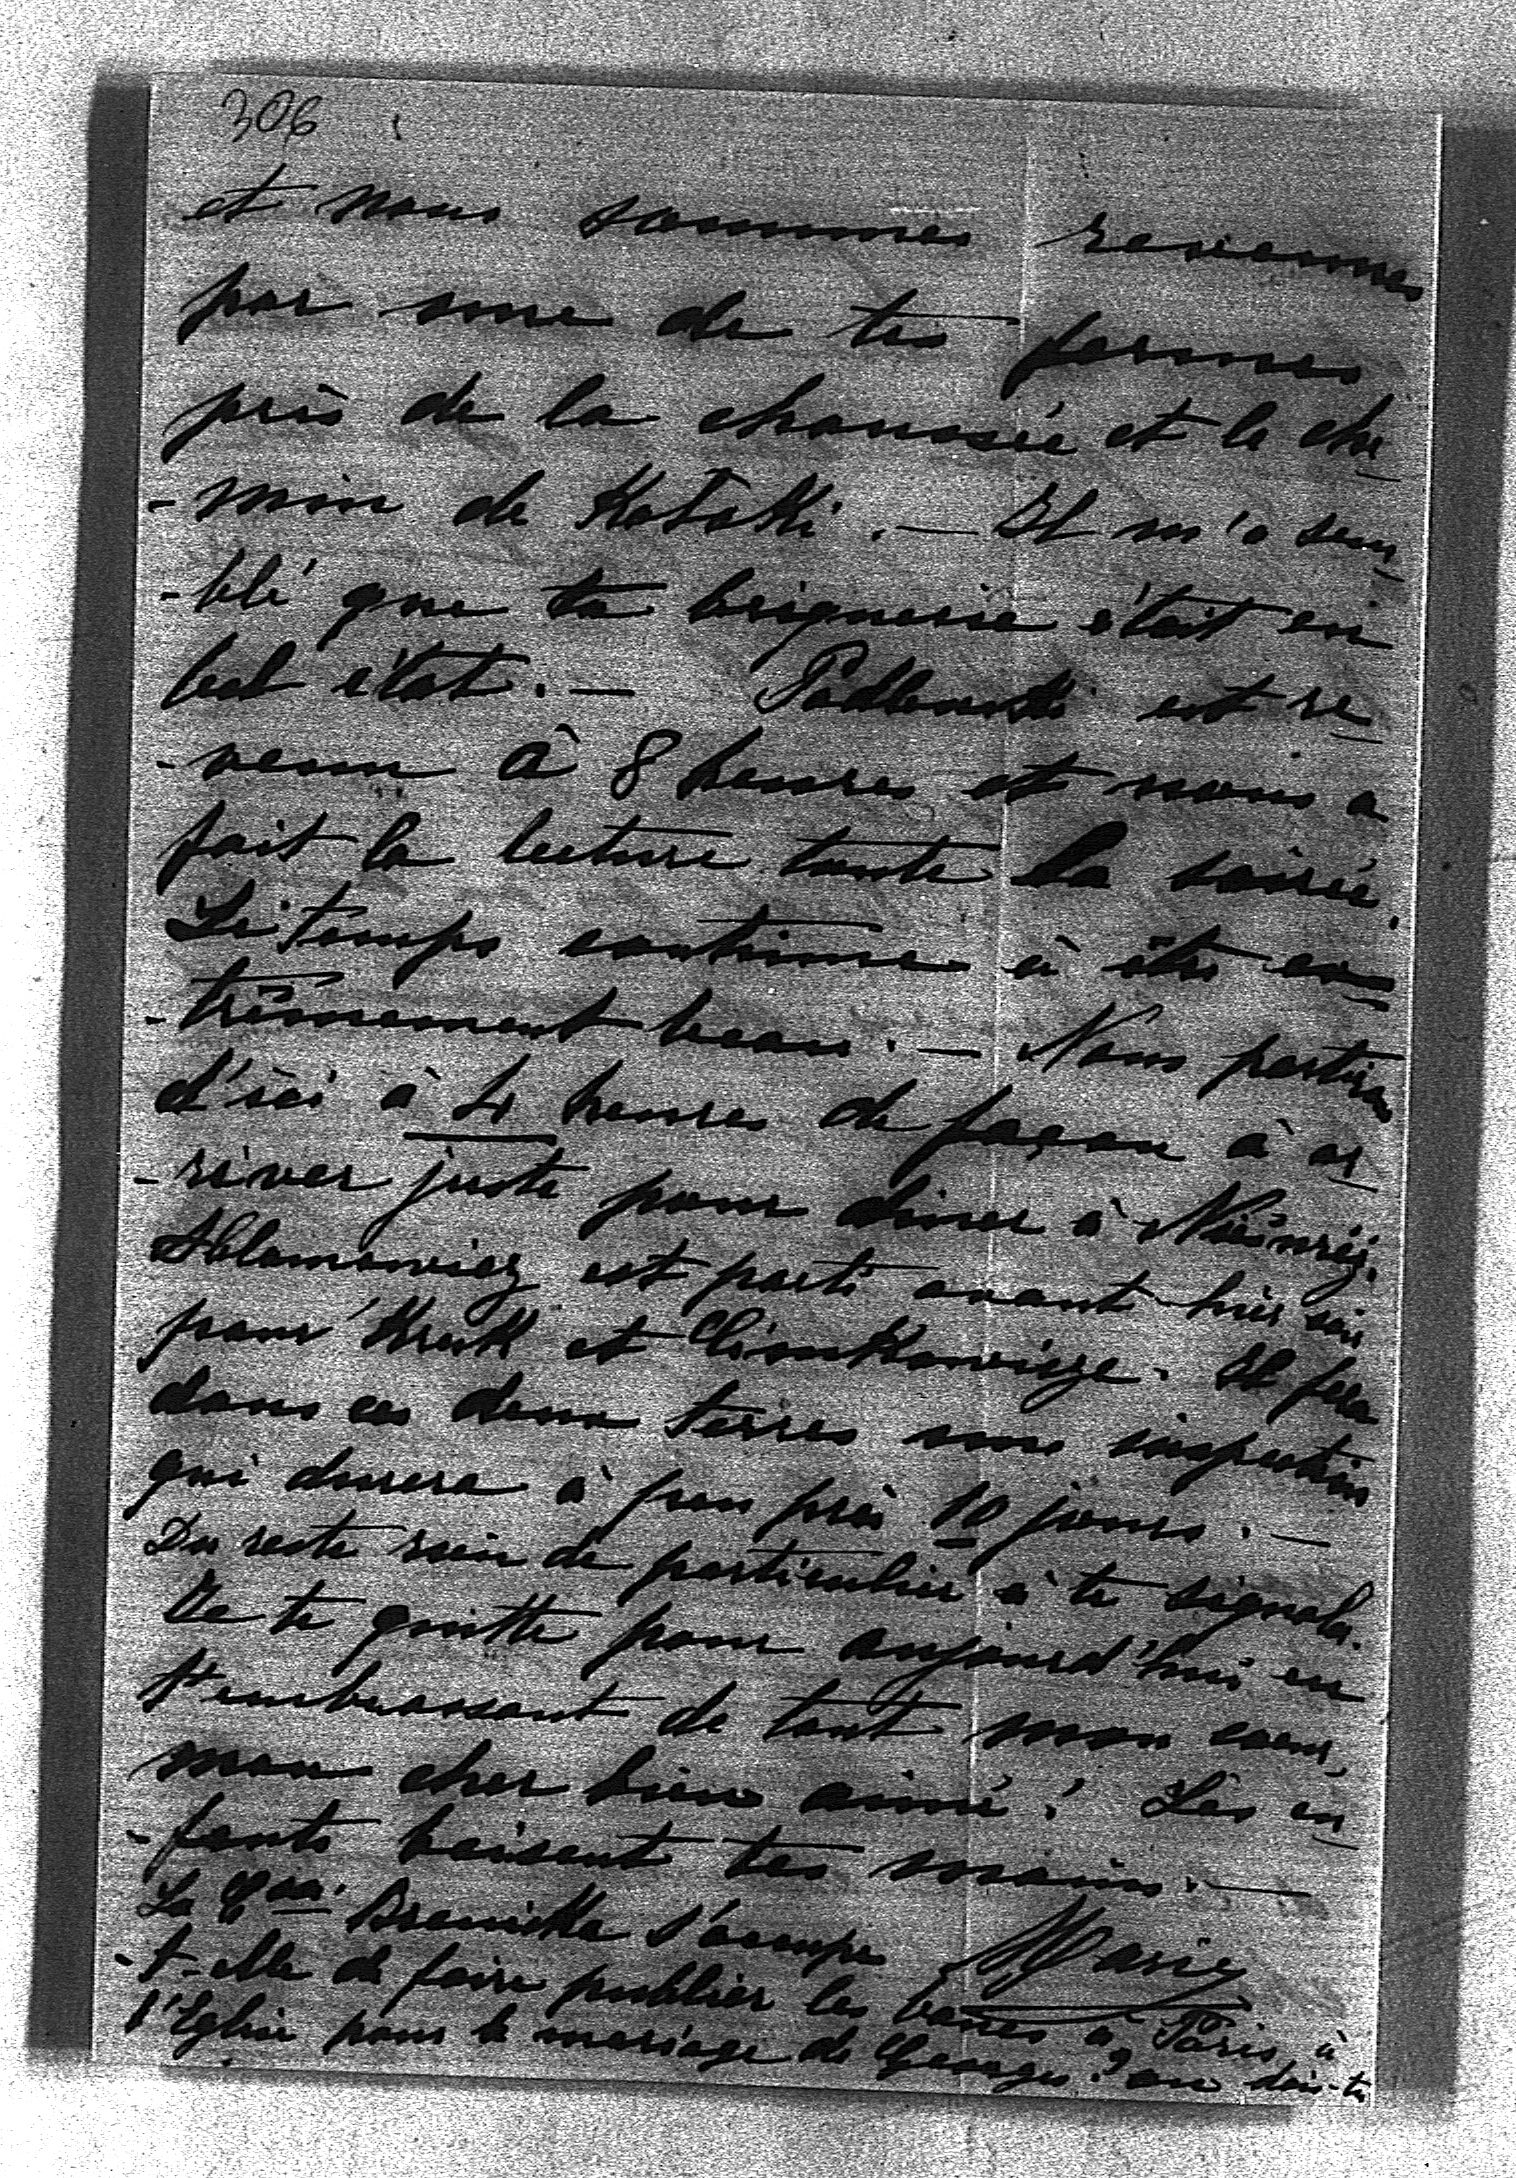 306
et nous sommes revenus
par une de tes fermes
près de la chaussée et le che
-min de Kotaki. — Il m'a sem
-blé que ta briquerie était en
bel état. — Podhorski est re
-venu à 8 heures et nous a
fait la lecture toute la soirée.
Le temps continue à être ex
-trêmement beau. — Nous partons
d'ici à 4 heures de façon à ar
-river juste pour dîner à Nieśwież.
Ablamowicz est parti avant-hier soir
pour Kreck et Climkowicze. Il fera
dans ces deux terres une inspection
qui durera à peu près 10 jours. —
Du reste rien de particulier à te signaler.
Je te quitte pour aujourd'hui en
t'embrassant de tout mon coeur,
mon cher bien aimé! Les en
-fants baisent tes mains. —
Marie
La Csse Branicka s'occupe
-t-elle de faire publier les bancs à Paris, à
l'Eglise pour le mariage de Georges? ou dois-tu